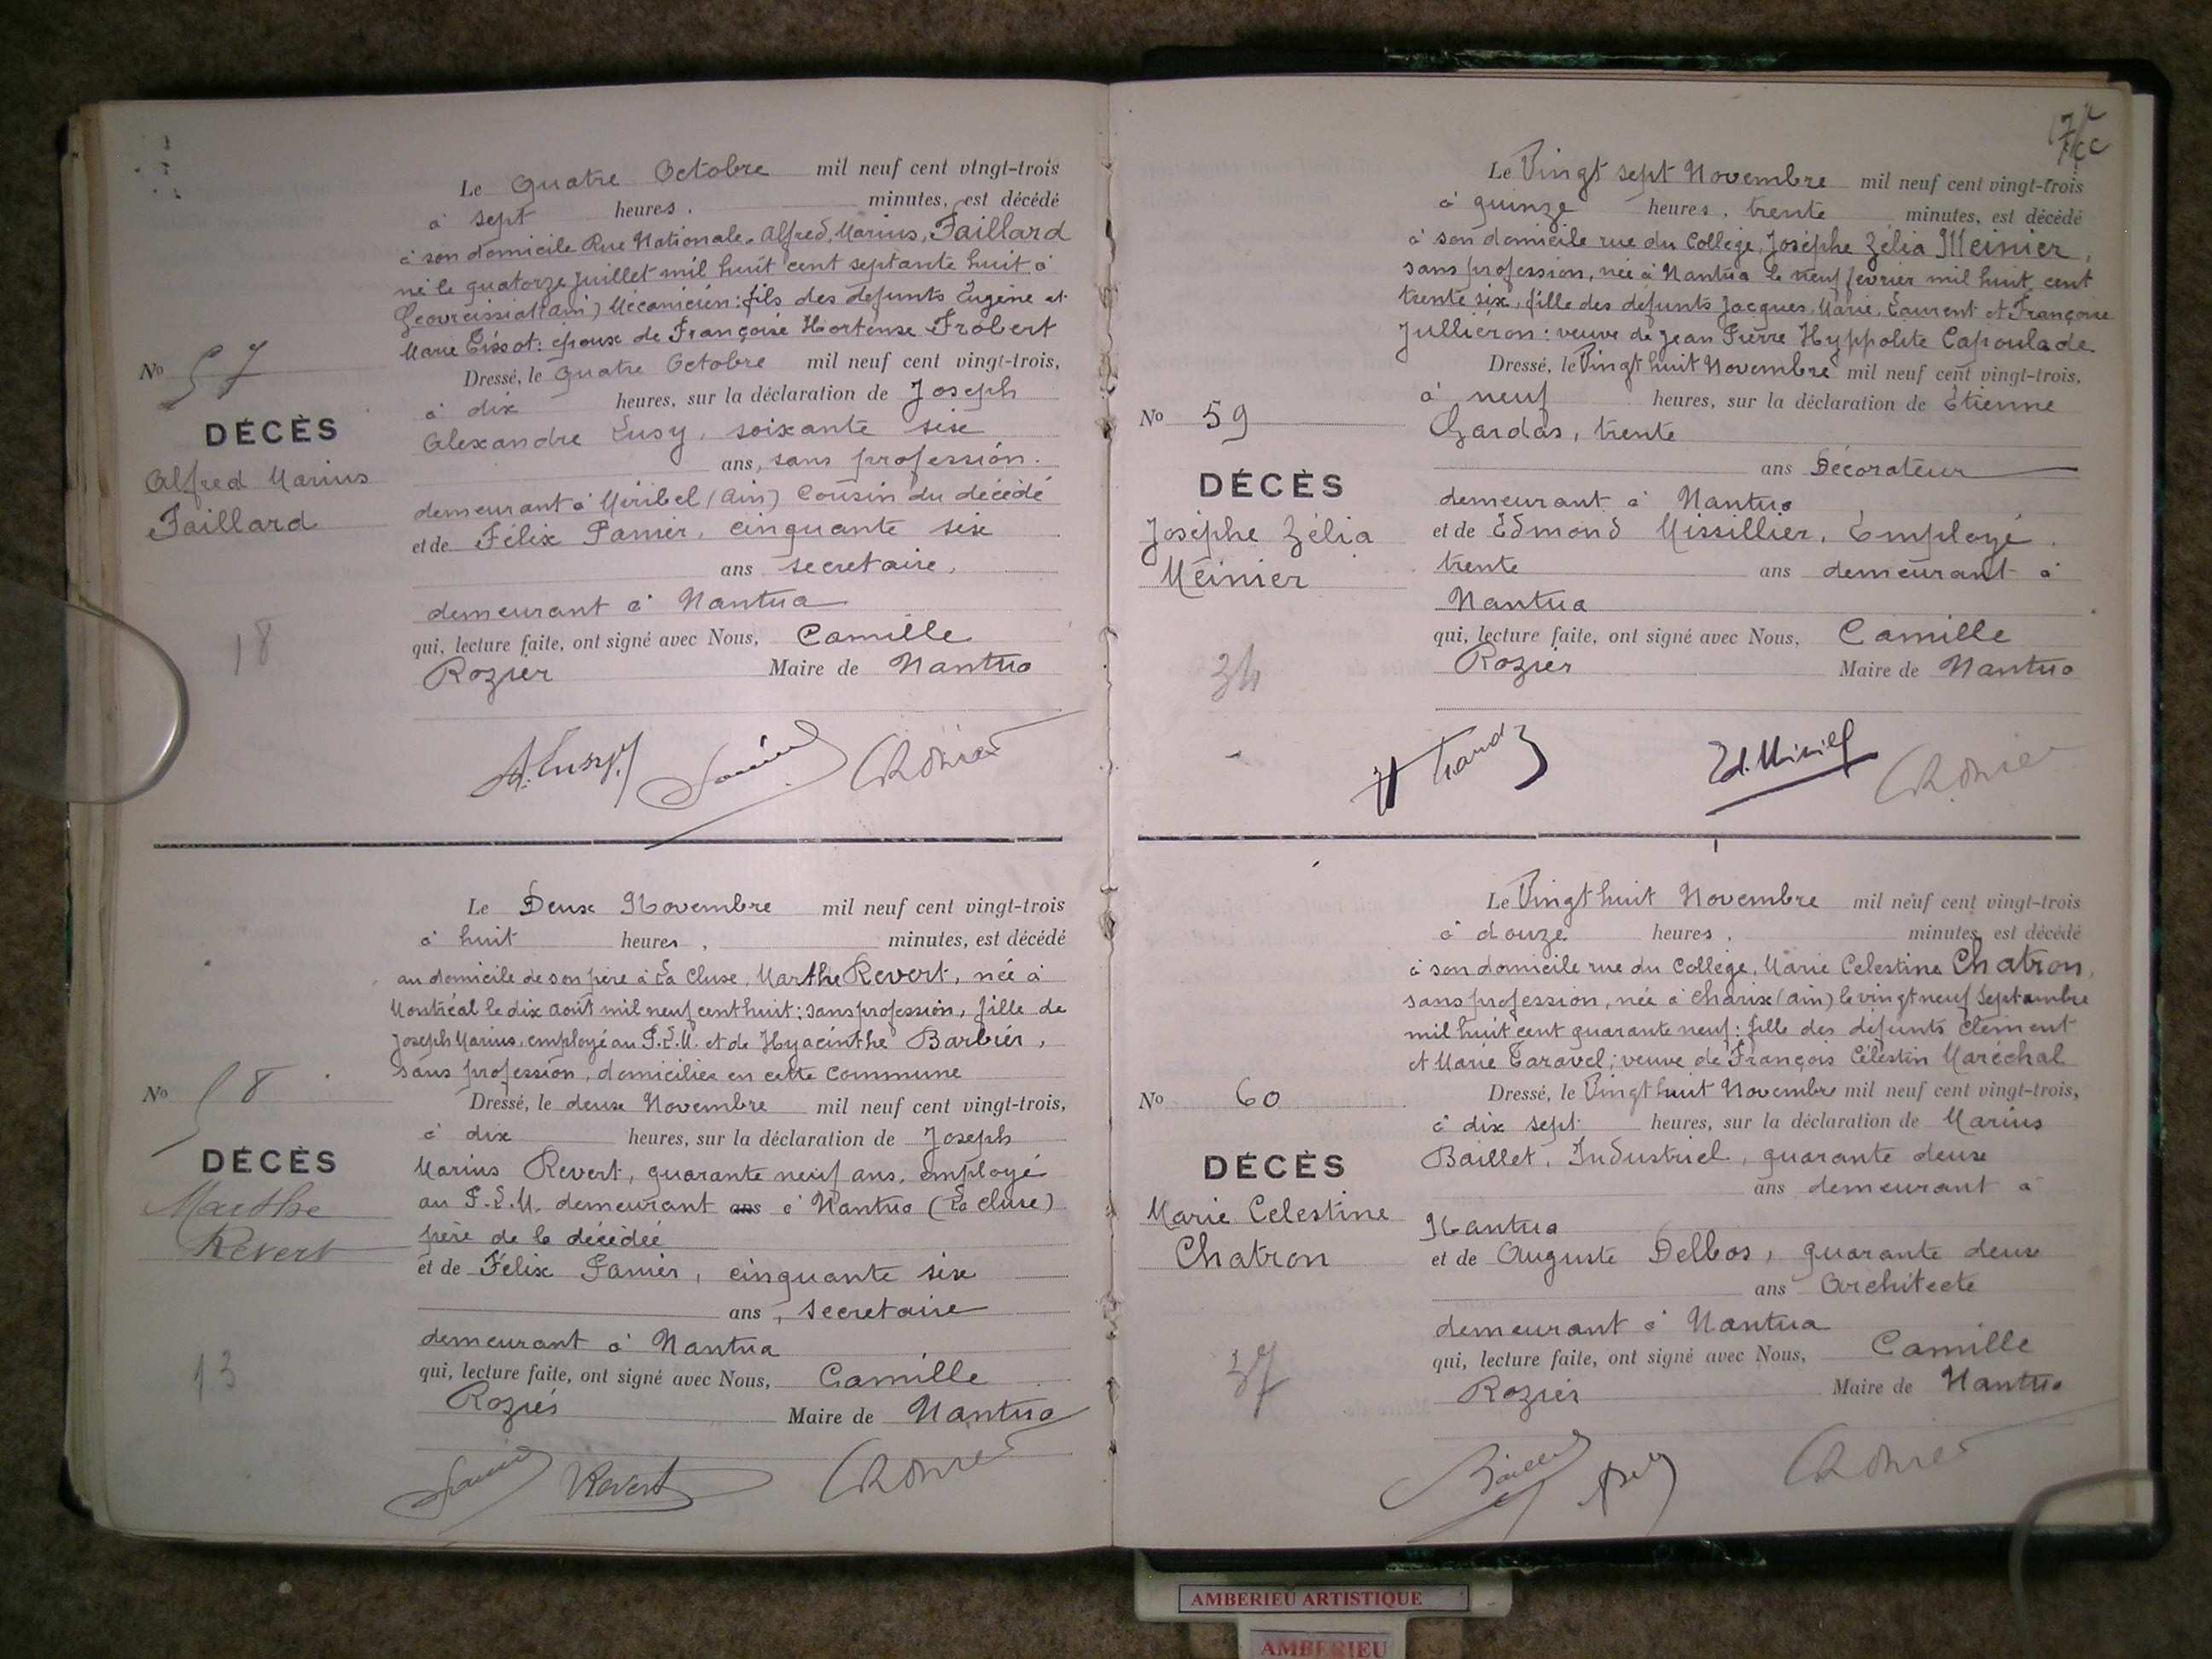 Le Quatre Octobre mil neuf cent vingt-trois
à sept heures, minutes, est décédé
à son domicile Rue Nationale, Alfred, Marius, Faillard
né le quatorze juillet mil huit cent septante huit à
Géovreissiat (Ain) Mécanicien: fils des défunts Eugène et
Marie Tissot: époux de Françoise Hortense Frobert
No 57
Dressé, le Quatre Octobre mil neuf cent vingt-trois,
à dix heures, sur la déclaration de Joseph
DÉCÈS
Alexandre Lusy, soixante six
ans, sans profession.
Alfred Marius
Faillard
demeurant à Miribel (Ain) Cousin du décédé
et de Félix Panier, cinquante six
ans secretaire,
demeurant à Nantua
qui, lecture faite, ont signé avec Nous, Camille
18
Rozier Maire de Nantua
A. Lusy
Le Deux Novembre mil neuf cent vingt-trois
à huit heures, minutes, est décédé
au domicile de son père à La Cluse, Marthe Revert, née à
Montréal le dix août mil neuf cent huit: sans profession, fille de
Joseph Marius, employé au P.L.M. et de Hyacinthe Barbier,
sans profession, domiciliés en cette commune
No 58
Dressé, le deux Novembre mil neuf cent vingt-trois,
à dix heures, sur la déclaration de Joseph
DÉCÈS
Marius Revert, quarante neuf ans, employé
au P.L.M. demeurant ans à Nantua (La Cluse)
Marthe
Revert
père de la décédée
et de Félix Panier, cinquante six
ans, secretaire
demeurant à Nantua
13
qui, lecture faite, ont signé avec Nous, Camille
Rozier Maire de Nantua
Revert
Le Vingt sept Novembre mil neuf cent vingt-trois
à quinze heures, trente minutes, est décédé
à son domicile rue du Collège, Joséphe Zélia Meinier,
sans profession, née à Nantua le neuf février mil huit cent
trente six, fille des défunts Jacques, Marie, Laurent et Françoise
Julliéron: veuve de Jean Pierre Hyppolite Capoulade
Dressé, le Vingt huit Novembre mil neuf cent vingt-trois,
à neuf heures, sur la déclaration de Etienne
No 59
Chardas, trente
ans Décorateur
DÉCÈS
demeurant à Nantua
Joséphe Zélia
Meinier
et de Edmond Missillier, Employé.
trente ans demeurant à
Nantua
qui, lecture faite, ont signé avec Nous, Camille
34
Rozier Maire de Nantua
Le Vingt huit Novembre mil neuf cent vingt-trois
à douze heures, minutes, est décédé
à son domicile rue du Collège, Marie Celestine Chatron,
sans profession, née à Charix (Ain) le vingt neuf Septembre
mil huit cent quarante neuf: fille des défunts Clément
et Marie Taravel; veuve de François Célestin Maréchal
No 60
Dressé, le Vingt huit Novembre mil neuf cent vingt-trois,
à dix sept heures, sur la déclaration de Marius
DÉCÈS
Baillet, Industriel, quarante deux
ans demeurant à
Marie Celestine
Chatron
Nantua
et de Auguste Delbos, quarante deux
ans Architecte
demeurant à Nantua
37
qui, lecture faite, ont signé avec Nous, Camille
Rozier Maire de Nantua
AMBERIEU ARTISTIQUE
AMBERIEU